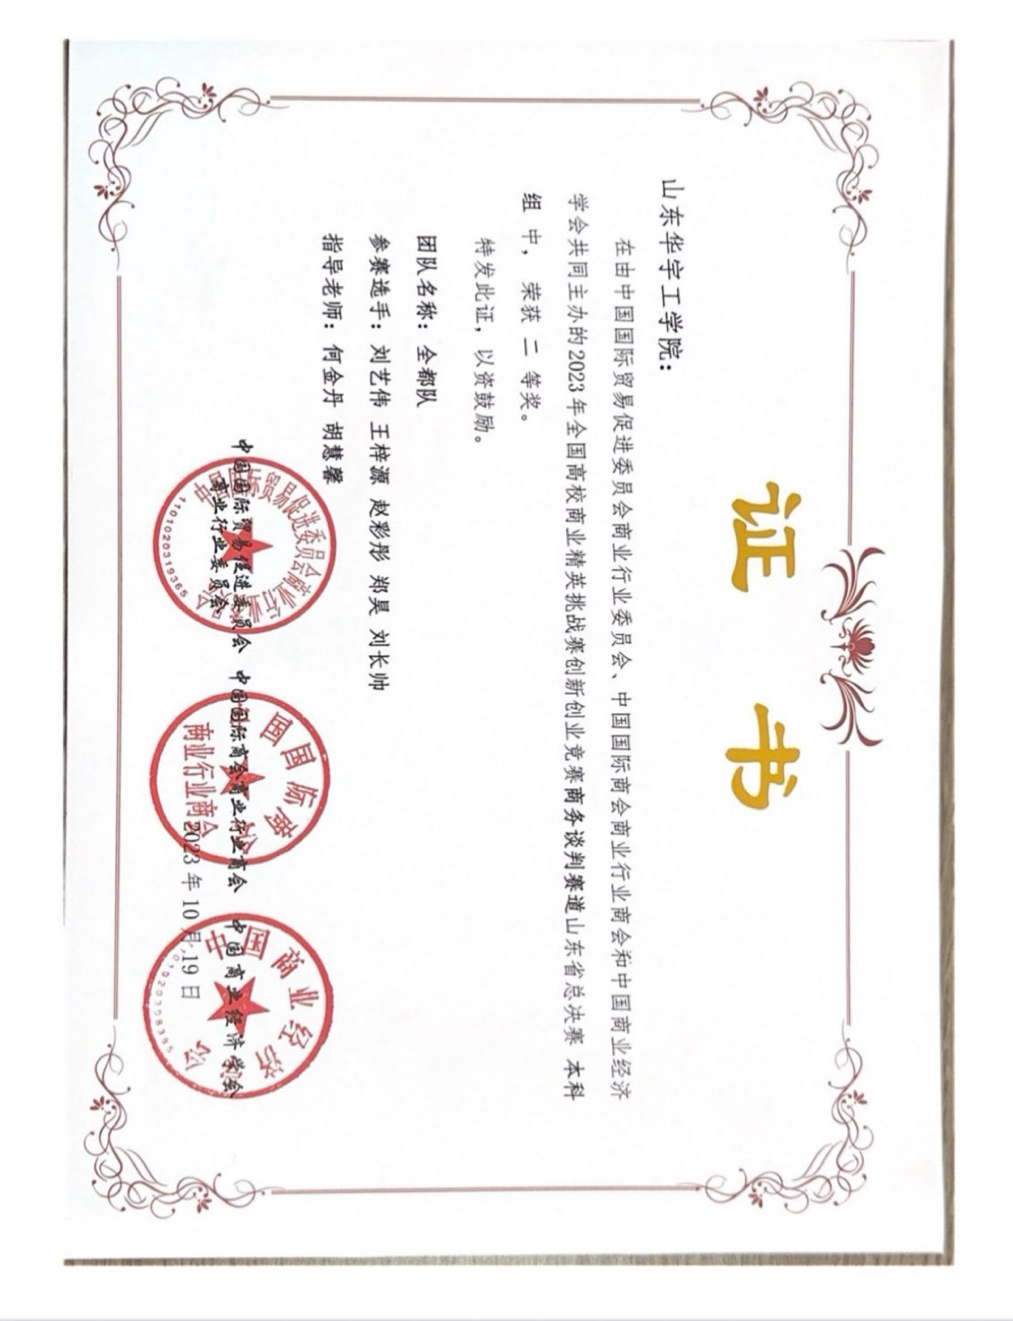 证 书
山东华宇工学院：
在由中国国际贸易促进委员会商业行业委员会、中国国际商会商业行业商会和中国商业经济
学会共同主办的2023年全国高校商业精英挑战赛创新创业竞赛商务谈判赛道山东省总决赛 本科
组 中， 荣获 二 等奖。
特发此证，以资鼓励。
团队名称：全都队
参赛选手：刘艺伟 王梓源 赵彩彤 郑昊 刘长帅
指导老师：何金丹 胡慧馨
中国国际贸易促进委员会 中国国际商会商业行业商会 中国商业经济学会
商业行业委员会
2023年10月19日
中国国际贸易促进委员会商业行业
1101020319365
国国际商会
商业行业商会
中国商业经济